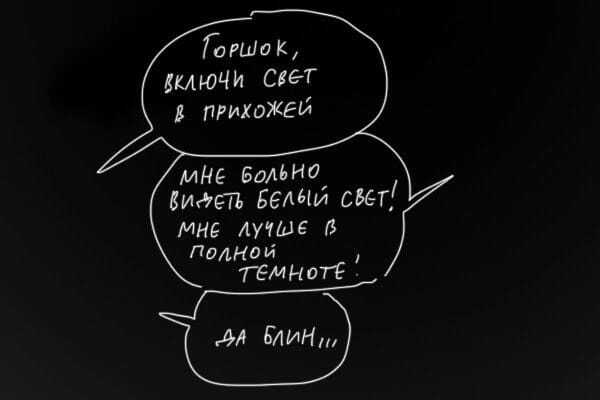 Горшок,
включи свет
в прихожей
мне больно
видеть белый свет!
мне лучше в
полной
темноте!
да блин...